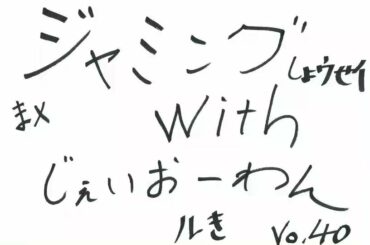 ジャミング
しょウセイ
まメ With
じぇいおーわん
ルき Vo.40